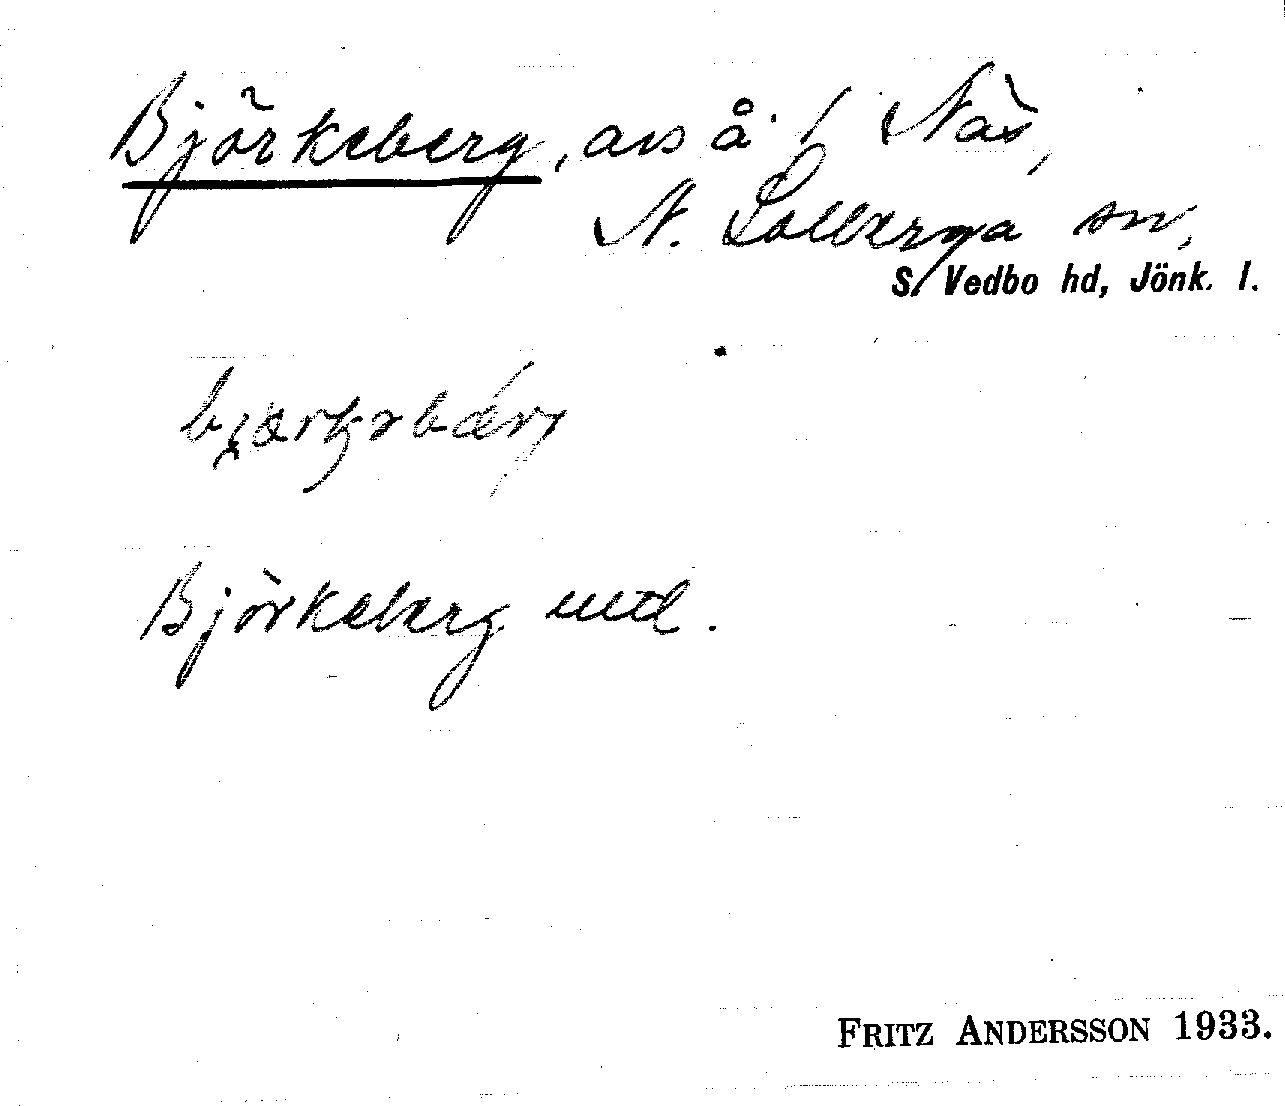 Björkeberg, avs å 1 Näs,
N. Solberga sn,
S. Vedbo hd, Jönk. l.
Björkeberg uttl.
FRITZ ANDERSSON 1933.